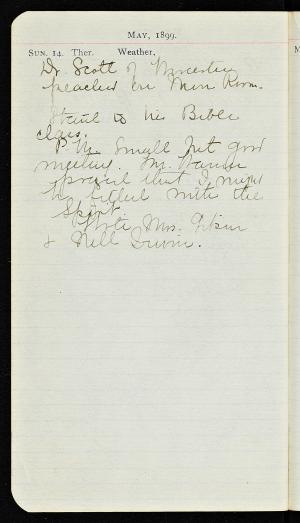 MAY, 1899.
SUN. 14. Ther. Weather,
Dr. Scott of Worcester
preached in Mem Room.
Staid to his Bible
class.
P.M. Small but good
meeting. Mr.
prayed that I might
be filled with the
Spirit.
Wrote Mrs.
& Nell